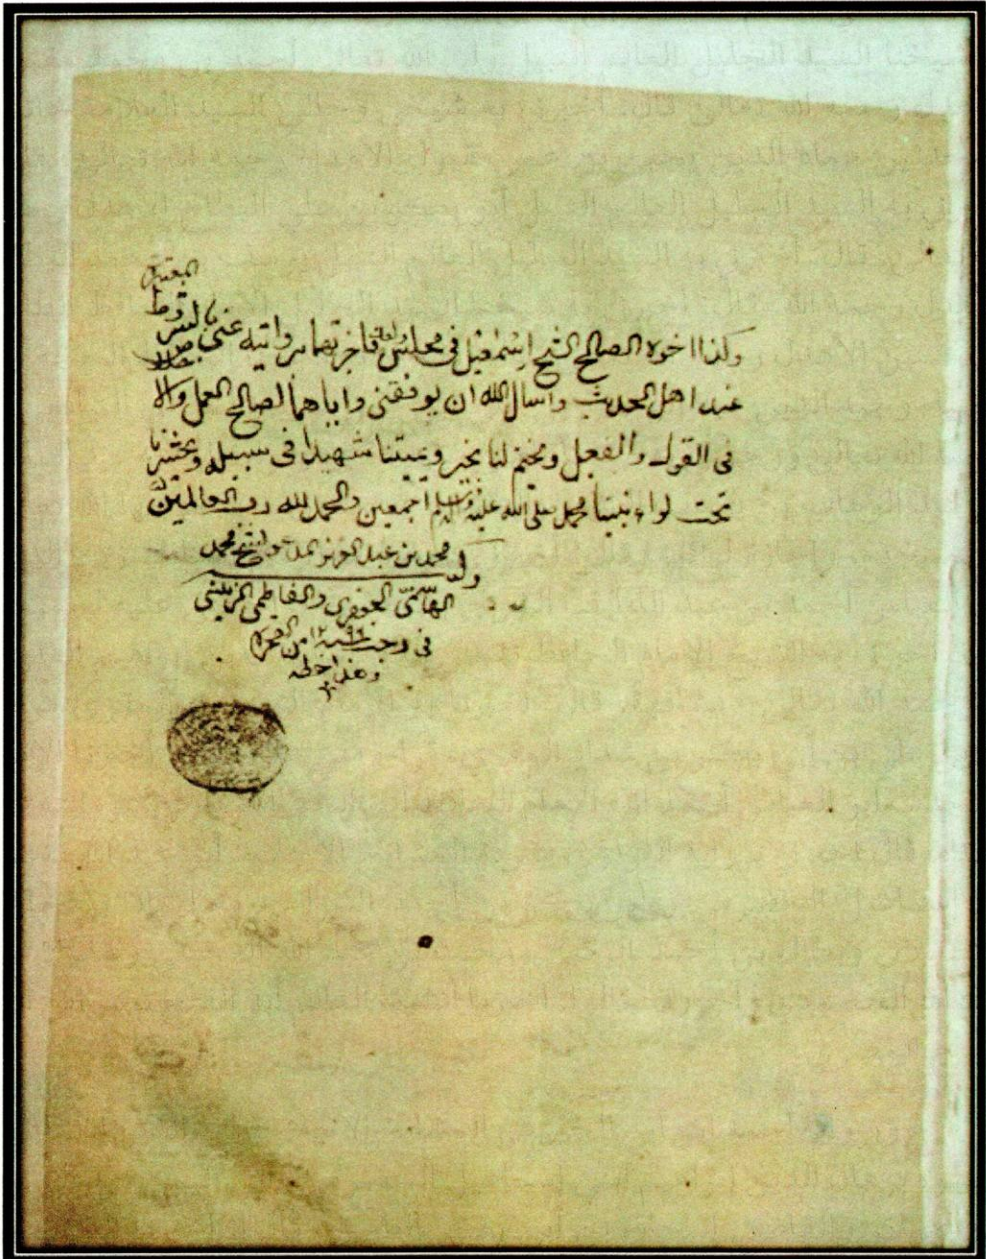 وكذا اخوه الصالح الشيخ اسمعيل في مجلس فاجزتهما بروايته عني بالشروط
المعتبرة
عند اهل الحديث واسال الله ان يوفقني واياهما لصالح العمل والاخلاص
في القول والفعل ويختم لنا بخير ويميتنا شهيدا في سبيله ويحشرنا
تحت لواء نبينا محمد صلى الله عليه وسلم اجمعين والحمد لله رب العالمين
محمد بن عبد العزيز محمد
الهاشمي الجعفري والفاطمي الزينبي
في رجب سنة ١٢٩٦ من الهجرة
وهذا خطه